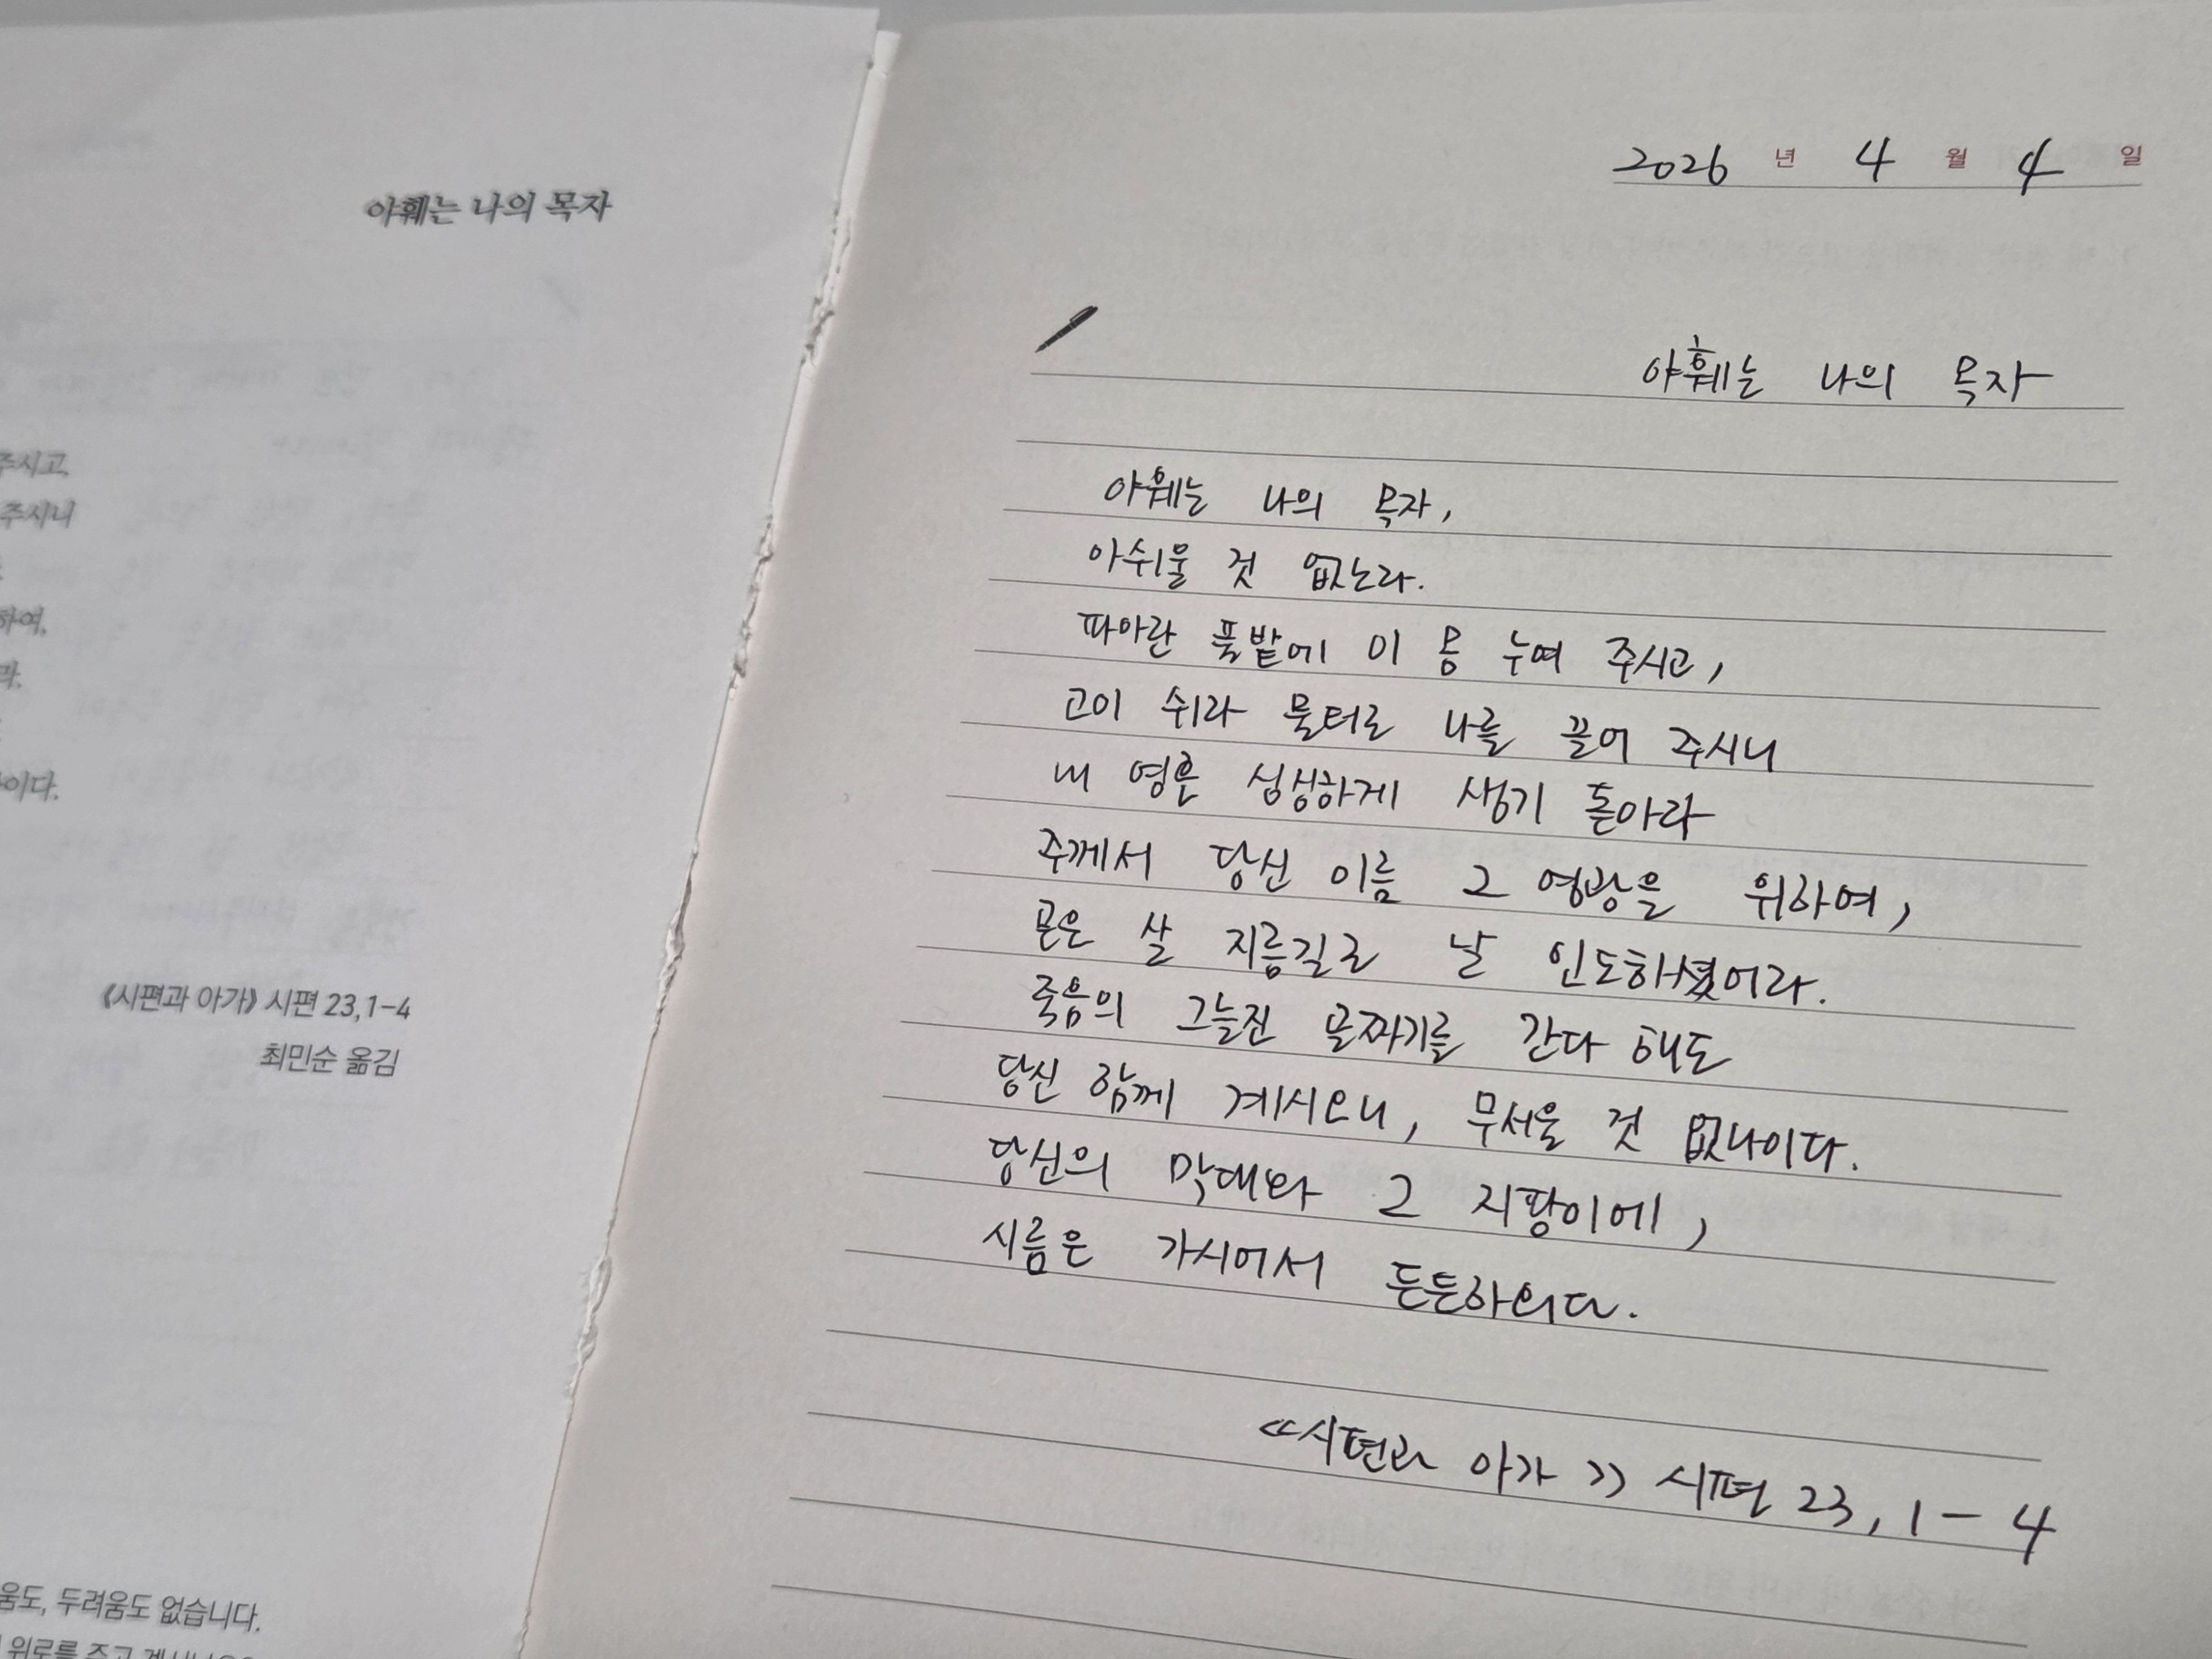 야훼는 나의 목자
주시고,
주시니
하여,
이다.
《시편과 아가》 시편 23,1-4
최민순 옮김
움도, 두려움도 없습니다.
위로를 주고
2026 년 4 월 4 일
야훼는 나의 목자
야훼는 나의 목자,
아쉬울 것 없노라.
파아란 풀밭에 이 몸 누여 주시고,
고이 쉬라 물터로 나를 끌어 주시니
내 영혼 싱싱하게 생기 돋아라
주께서 당신 이름 그 영광을 위하여,
곧은 살 지름길로 날 인도하셨어라.
죽음의 그늘진 골짜기를 간다 해도
당신 함께 계시오니, 무서울 것 없나이다.
당신의 막대와 그 지팡이에,
시름은 가시어서 든든하외다.
《시편과 아가》 시편 23, 1-4